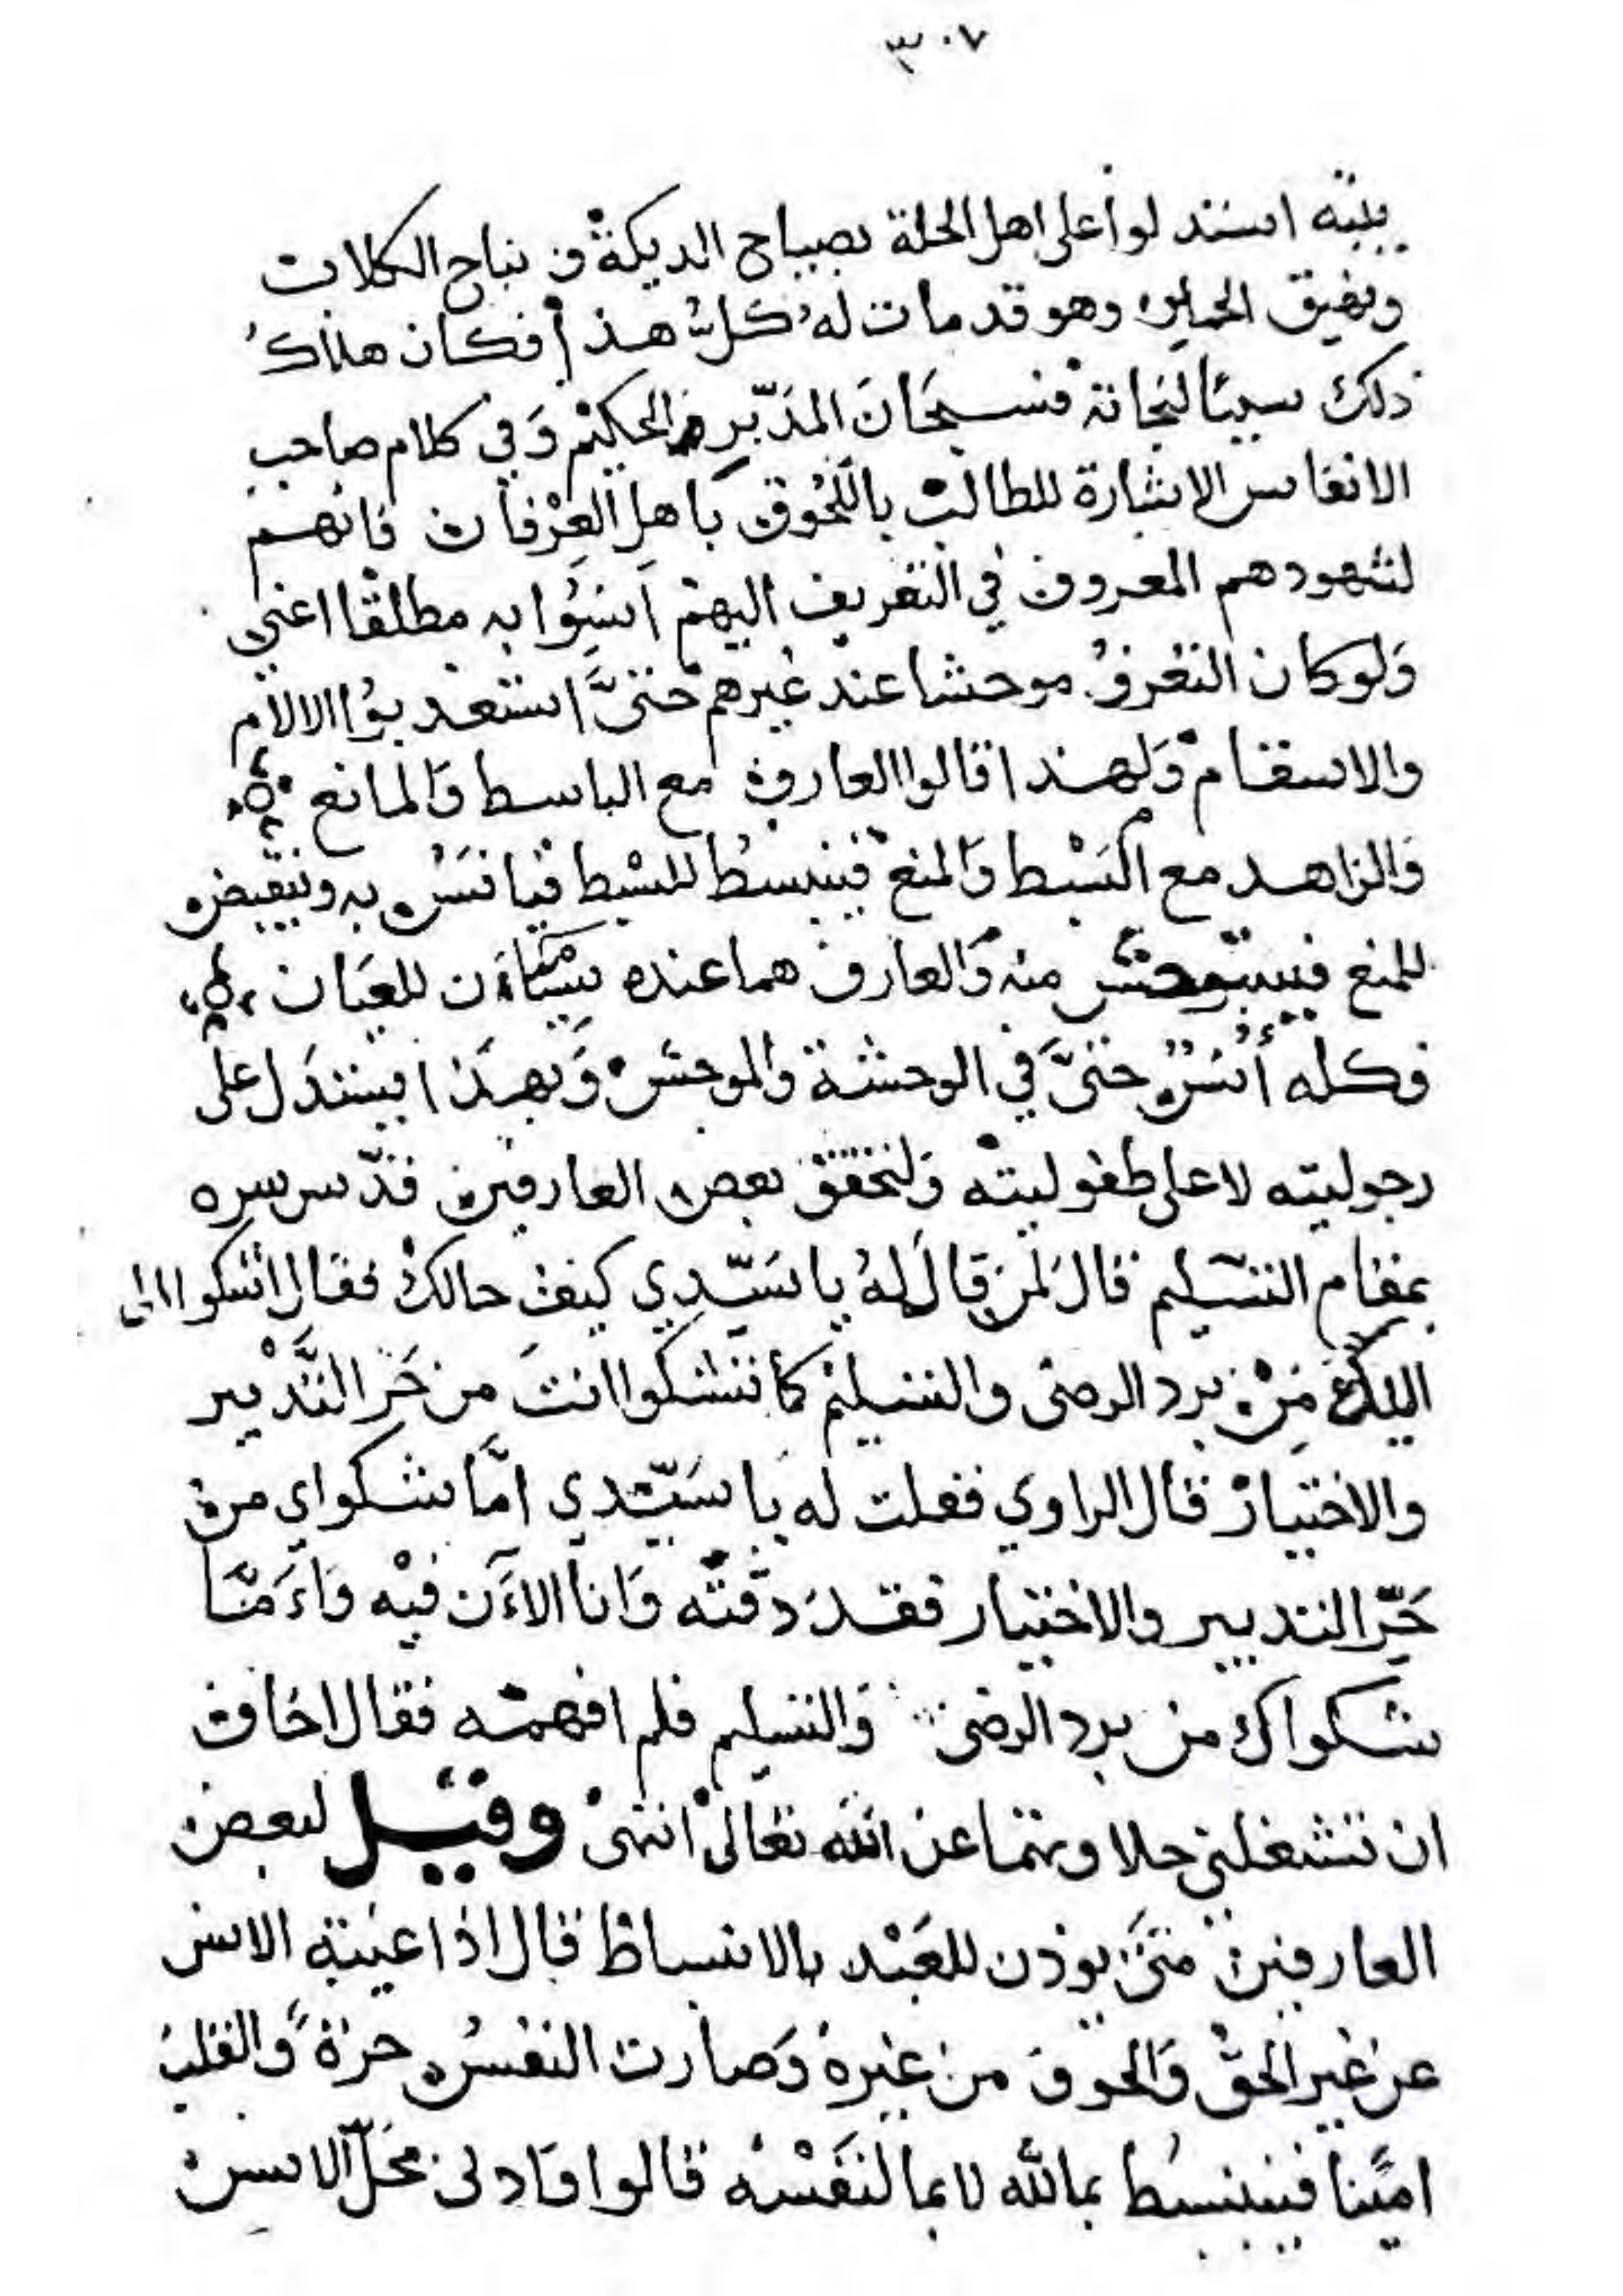 ٣٠٧
بليته استدلوا على اهل الحلة بصياح الديكة ونباح الكلاب
ونهيق الحمير وهو قد مات له كل هذا فكان هلاك
ذلك سببًا لنجاته فسبحان المدبر الحكيم وفي كلام صاحب
الانفاس الاشارة للطالب باللحوق باهل العرفان فانهم
لشهودهم المعروف في التعريف اليهم انسوا به مطلقا اعني
ولو كان التعرف موحشا عند غيرهم حتى استعذبوا الالام
والاسقام ولهذا قالوا العارف مع الباسط والمانع
والزاهد مع البسط والمنع فينبسط للبسط فيانس به وينقبض
للمنع فيستوحش منه والعارف هما عنده سيان للعيان
فكله أنس حتى في الوحشة والموحش وبهذا يستدل على
رجوليته لا على طفوليته ولتحقق بعض العارفين قدس سره
بمقام التسليم قال لمن قال له يا سيدي كيف حالك فقال اشكوا الى
الله من برد الرضى والتسليم كما تشكوا انت من حر التدبير
والاختيار قال الراوي فقلت له يا سيدي اما شكواي من
حر التدبير والاختيار فقد ذقته وانا الاءن فيه واءما
شكواك من برد الرضى والتسليم فلم افهمه فقال اخاف
ان تشغلني حلاوتهما عن الله تعالى انتهى وقيل لبعض
العارفين متى يوذن للعبد بالانبساط قال اذا غيبه الانس
عن غير الحق والخوف من غيره وصارت النفس حرة والقلب
امينا فينبسط بما لله لا بما لنفسه قالوا فادنى محل الانس